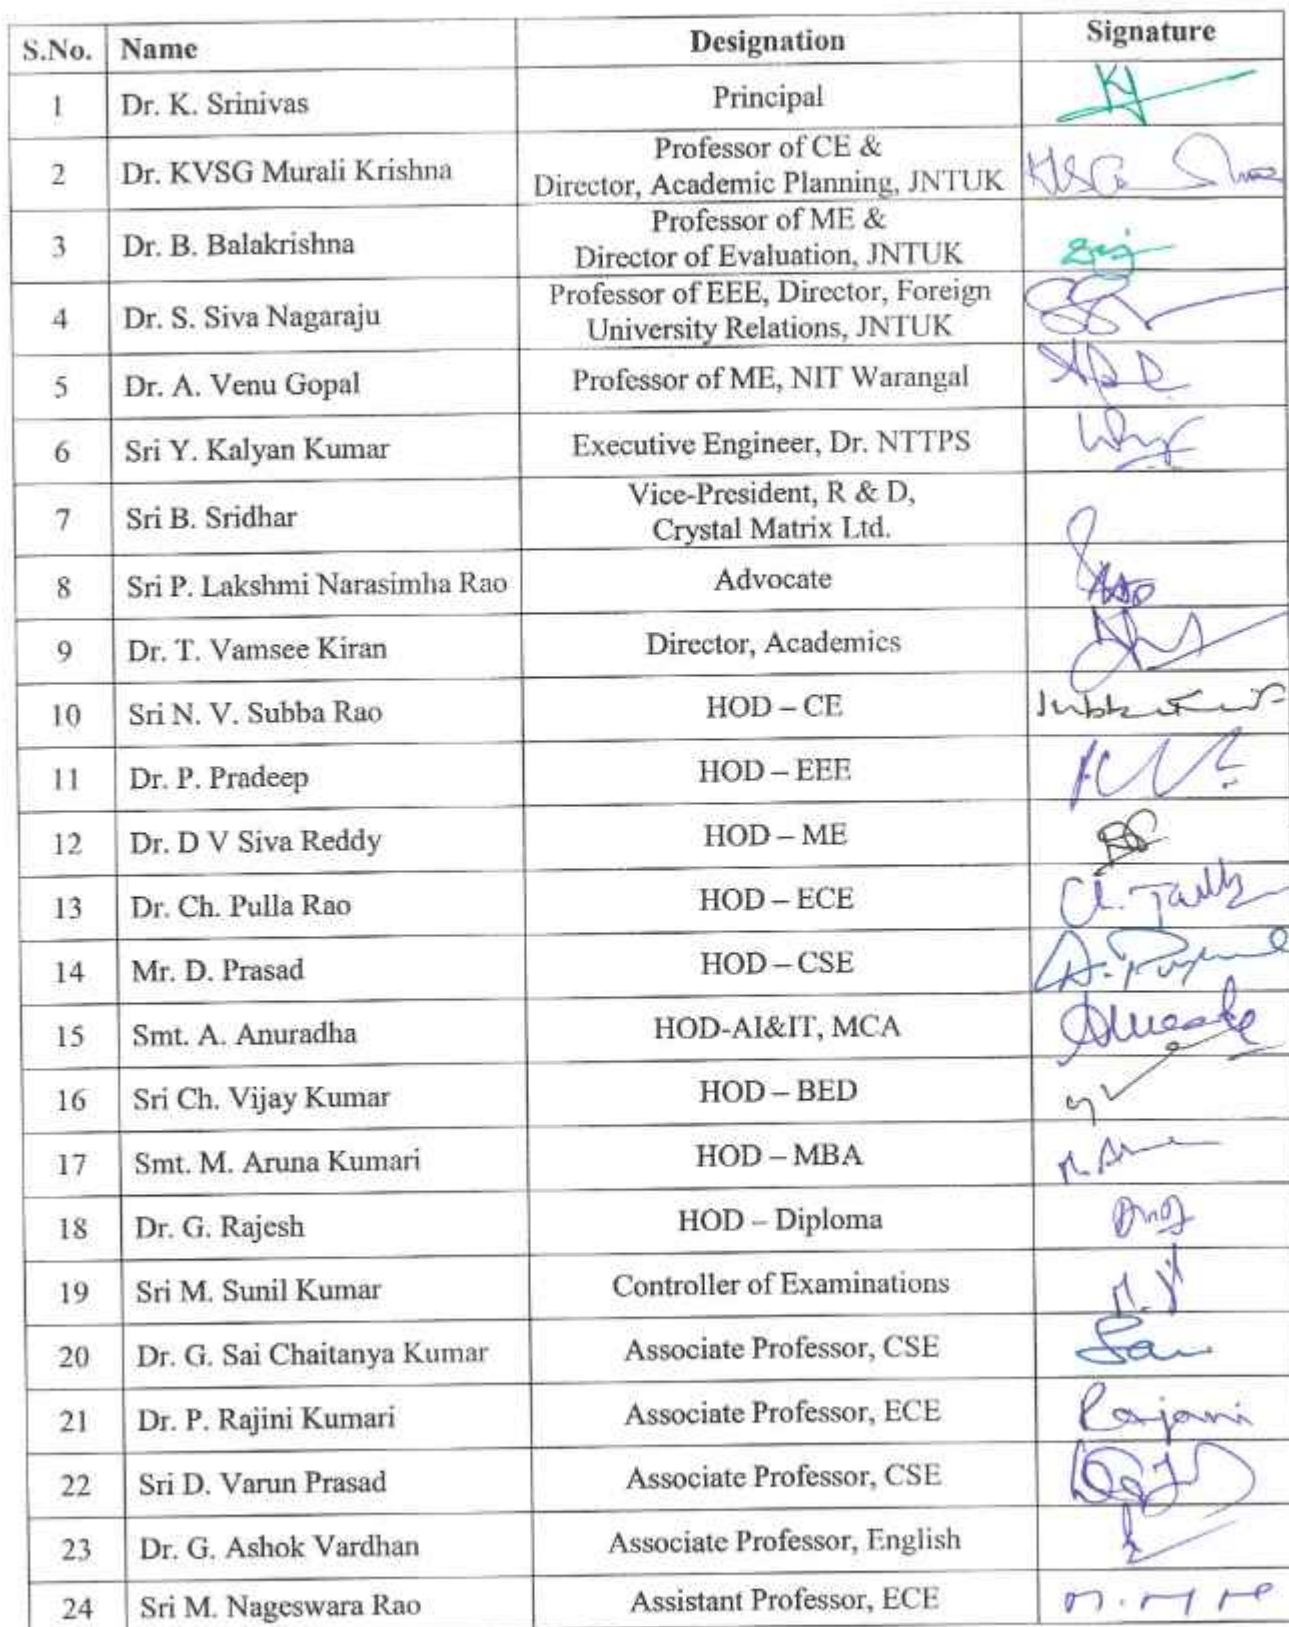 S.No. Name Designation Signature
1 Dr. K. Srinivas Principal
2 Dr. KVSG Murali Krishna Professor of CE &
Director, Academic Planning, JNTUK
3 Dr. B. Balakrishna Professor of ME &
Director of Evaluation, JNTUK
4 Dr. S. Siva Nagaraju Professor of EEE, Director, Foreign
University Relations, JNTUK
5 Dr. A. Venu Gopal Professor of ME, NIT Warangal
6 Sri Y. Kalyan Kumar Executive Engineer, Dr. NTTPS
7 Sri B. Sridhar Vice-President, R & D,
Crystal Matrix Ltd.
8 Sri P. Lakshmi Narasimha Rao Advocate
9 Dr. T. Vamsee Kiran Director, Academics
10 Sri N. V. Subba Rao HOD – CE
11 Dr. P. Pradeep HOD – EEE
12 Dr. D V Siva Reddy HOD – ME
13 Dr. Ch. Pulla Rao HOD – ECE
14 Mr. D. Prasad HOD – CSE
15 Smt. A. Anuradha HOD-AI&IT, MCA
16 Sri Ch. Vijay Kumar HOD – BED
17 Smt. M. Aruna Kumari HOD – MBA
18 Dr. G. Rajesh HOD – Diploma
19 Sri M. Sunil Kumar Controller of Examinations
20 Dr. G. Sai Chaitanya Kumar Associate Professor, CSE
21 Dr. P. Rajini Kumari Associate Professor, ECE Rajani
22 Sri D. Varun Prasad Associate Professor, CSE
23 Dr. G. Ashok Vardhan Associate Professor, English
24 Sri M. Nageswara Rao Assistant Professor, ECE